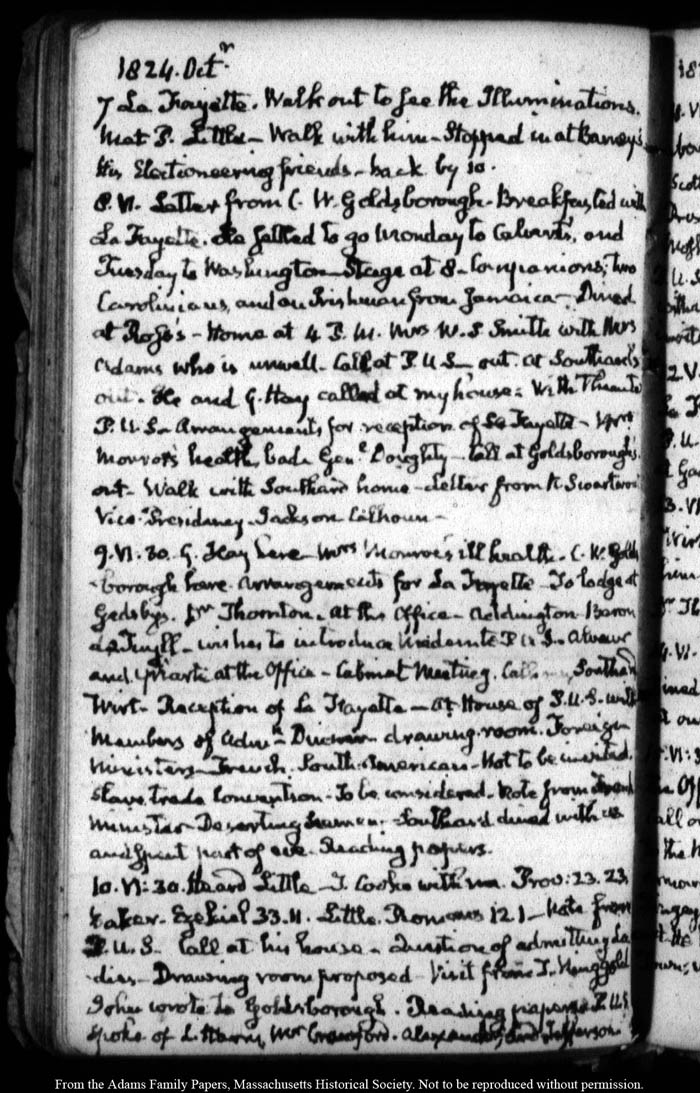 1824. Octr
7 La Fayette. Walk out to see the Illuminations.
Met P. Little – Walk with him – Stopped in at Barney's
His Electioneering friends – back by 10.
8. VI. Letter from C. W. Goldsborough. Breakfasted with
La Fayette. He  to go Monday to Calvert's, and
Tuesday to Washington – Stage at 8 – Companions; two
Carolinians, and an Irishman from Jamaica – Dined
at Ross's – Home at 4 P. M. Mrs W. S. Smith with Mrs
Adams who is unwell. Call at P. U S – out. at Southard's
out. He and G. Hay called at my house: With
P. U. S – Arrangements for reception of La Fayette – Mrs
Monroe's health bad. Genl  – Call at Goldsborough's.
out – Walk with Southard home – Letter from R. Swartwout
Vice-Presidency – Jackson Calhoun –
9. VI. 30. G. Hay here – Mrs Monroe's ill health. C. W. Golds
-borough here. Arrangements for La Fayette – To lodge at
Gadsby's. Dr Thornton. At the Office – Addington Baron
de Tuyll – wishes to introduce  to P U S – Alvear
and  at the Office – Cabinet Meeting. Calhoun, Southard
Wirt – Reception of La Fayette – at House of P. U. S. with
Members of Admn – Dinner – drawing room. Foreign
Ministers – French. South-Americans – Not to be invited.
Slave trade Convention – To be considered. Note from French
Minister – Deserting Seamen. Southard dined with us
and spent part of eve. Reading papers.
10. VI: 30. Heard Little – J. Cooke with me. Prov: 23. 23
Baker. Ezekiel 33. 11. Little. Romans 12. 1 – Note from
P. U. S. Call at his house – Question of admitting La
-dies – Drawing room proposed – Visit from T. Ringgold
John wrote to Goldsborough. Reading papers. P. U S
spoke of  Mr Crawford. Alexander, and Jefferson
From the Adams Family Papers, Massachusetts Historical Society. Not to be reproduced without permission.